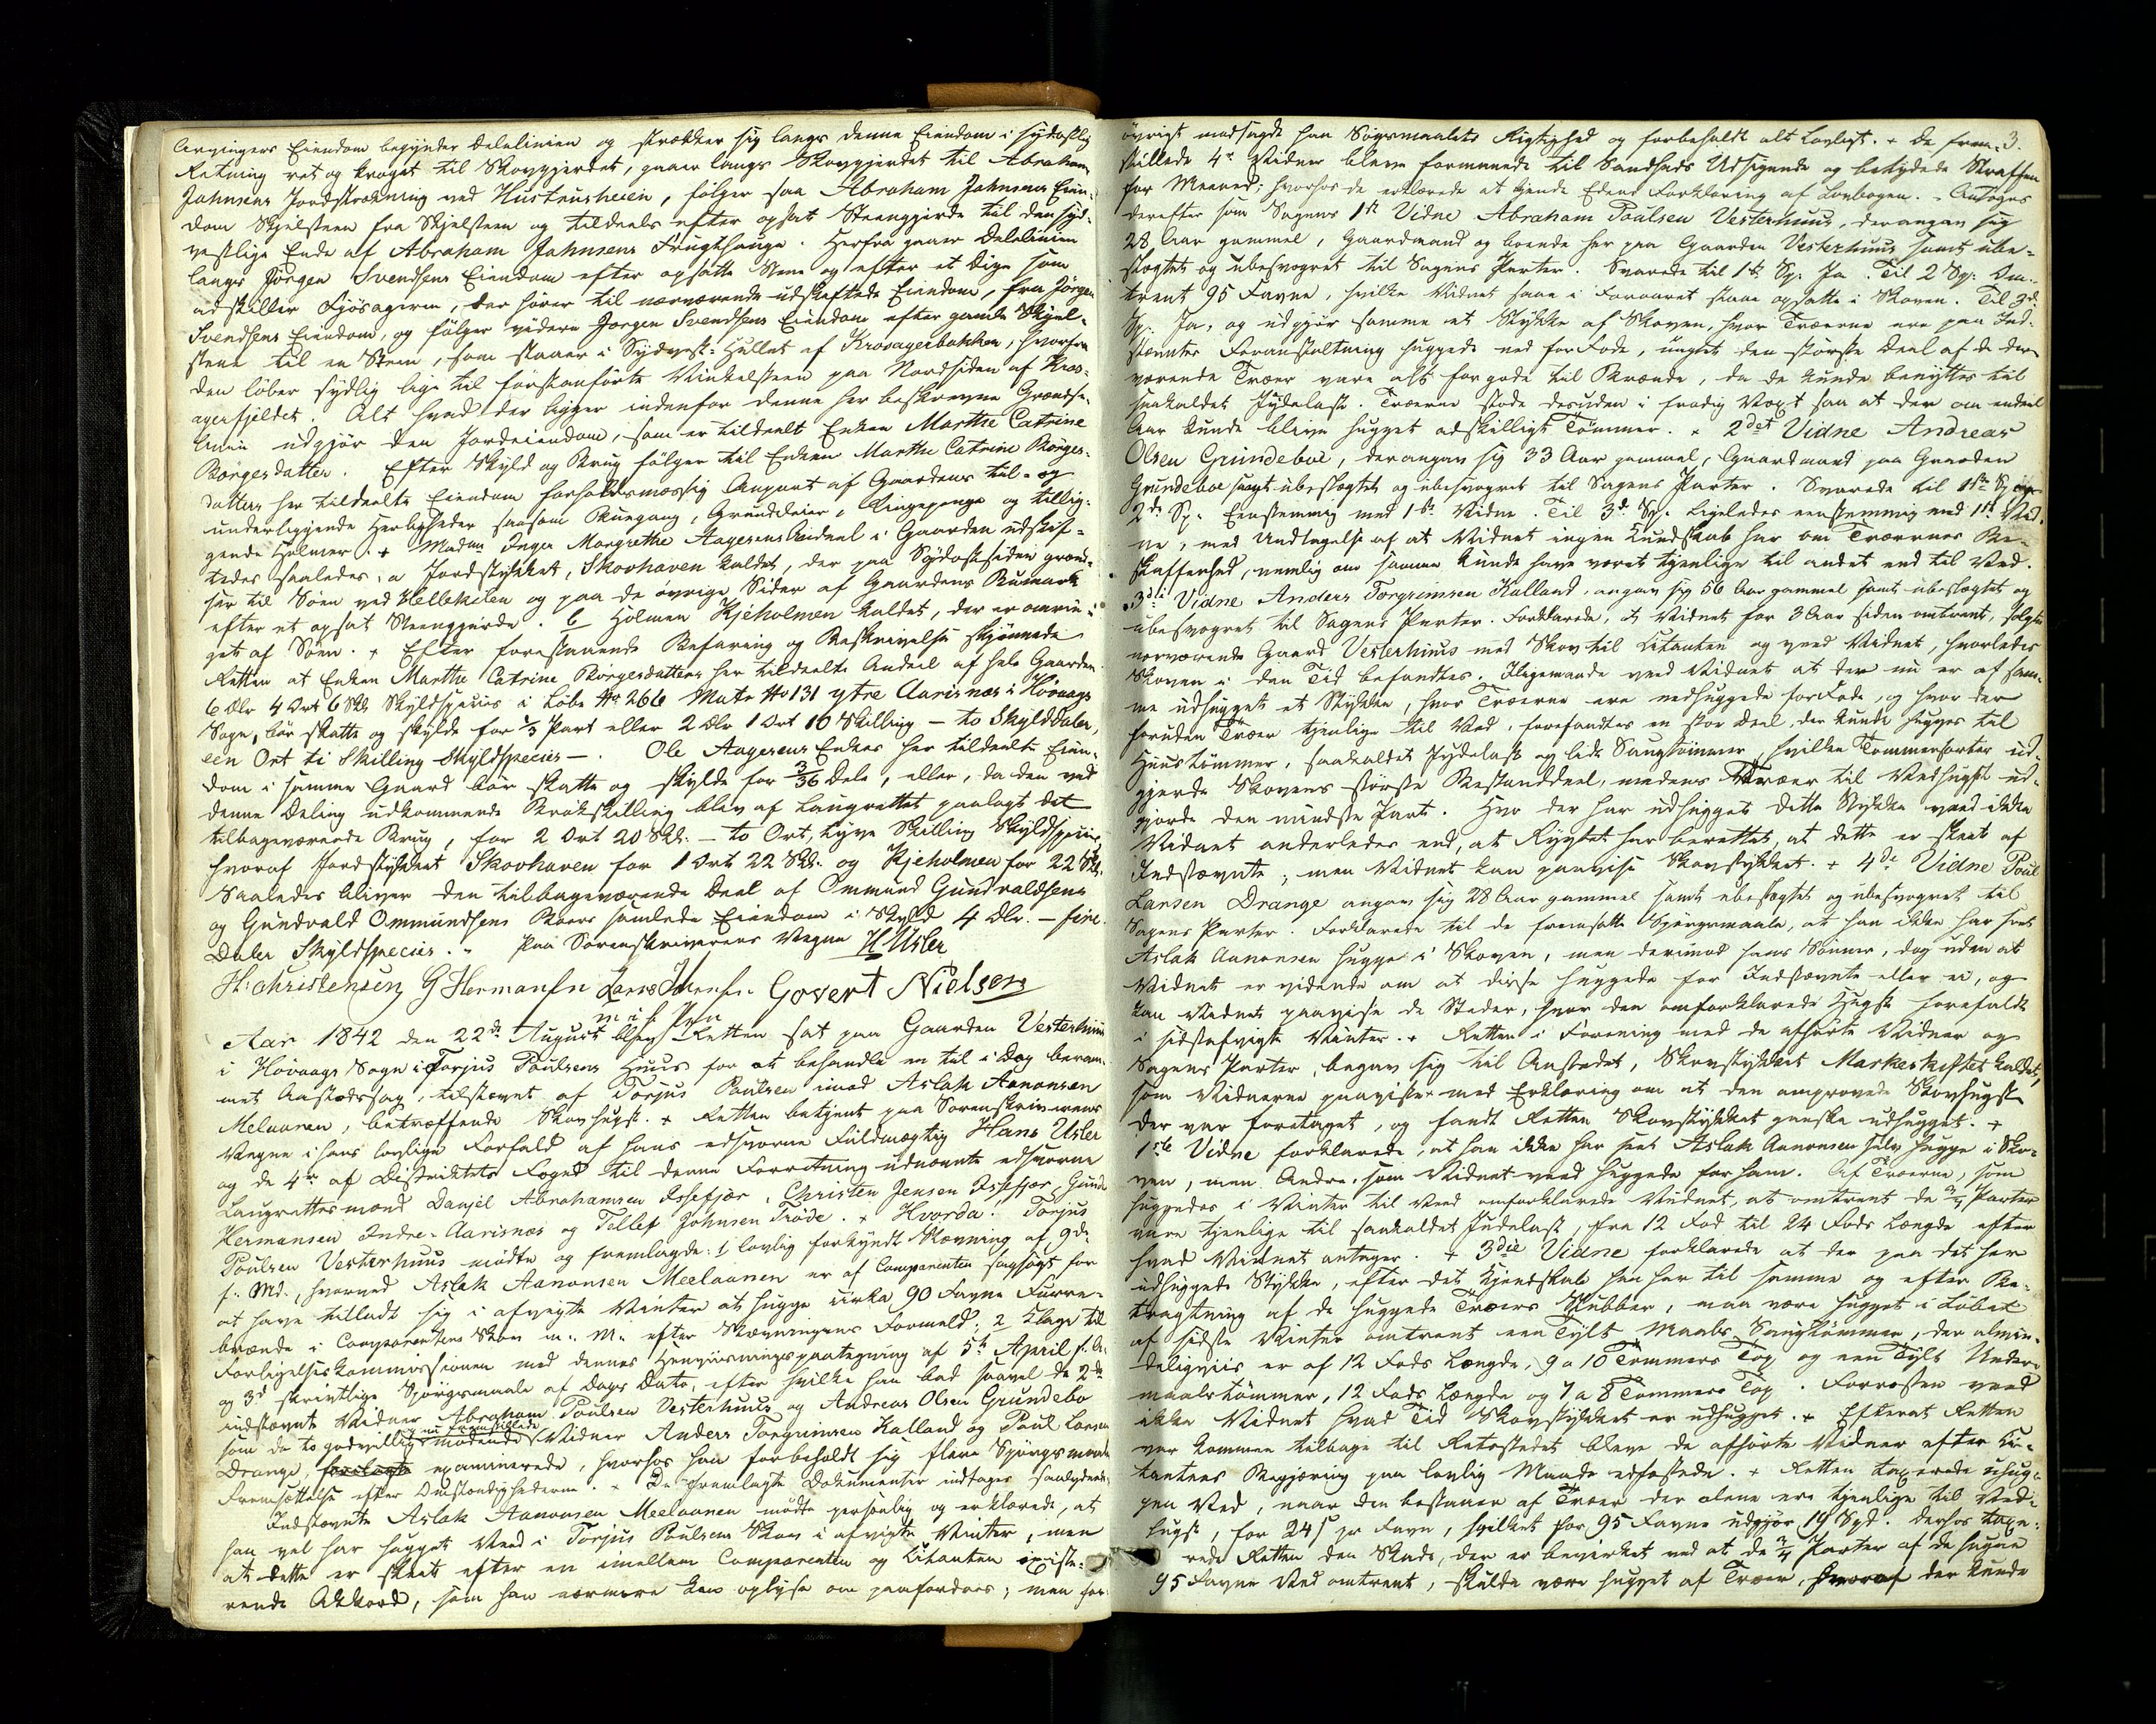 Arvingers Eiendom begynder Delelinien og strækker sig langs denne Eiendom i sydostlig
Retning ret og kroget til Skovgjerdet, gaaer langs Skovgjerdet til Abraham
Jahnsens Jordstrækning ved Hustrusheien, følger saa Abraham Jahnsens Eien-
dom Skjelsteen fra Skjelsteen og tildeels efter opsat Steengjerde til den syd-
vestlige Ende af Abraham Jahnsens Frugthauge. Herfra gaaer Delelinien
langs Jørgen Svendsens Eiendom efter opsatte Stene og efter et Dige som
adskiller Fjøsageren, der hører til nærværende udskiftede Eiendom, fra Jørgen
Svendsens Eiendom, og følger videre Jørgen Svendsens Eiendom efter gamle Skjel-
stene til en Steen, som staaer i Sydvest-Hullet af Krosagerbakken, hvorfra
den løber sydlig lige til førstanførte Vinkelsteen paa Nordsiden af Kros-
agerfjeldet. Alt hvad der ligger indenfor denne her beskrevne Grændse-
linie udgjør den Jordeiendom, som er tildeelt Enken Marthe Catrine
Børgesdatter. Efter Skyld og Brug følger til Enken Marthe Catrine Børges-
datters her tildeelte Eiendom forholdsmæssig Anpart af Gaardens til- og
underliggende Herligheder saasom Buegang, Grundleier, Tingepenge og tillig-
gende Holmer. + Madm Inger Margrethe Aagesens Andeel i Gaarden udskif-
tedes saaledes: a Jordstykket, Skovhaven kaldet, der paa Sydostsiden grænd-
ser til Søen ved Hellekilen og paa de øvrige Sider af Gaardens Bumark
efter et opsat Steengjerde. b Holmen Kjeholmen kaldet, der er omrin-
get af Søen. + Efter forestaaende Befaring og Beskrivelse skjønnede
Retten at Enken Marthe Catrine Børgesdatters her tildeelte Andeel af hele Gaarden
6 Dlr 4 Ort 6 Skl Skyldspecies i Løbe No 266 Matr No 131 ytre Aarisnæs i Høvaags
Sogn, bør skatte og skylde for 1/3 Part eller 2 Dlr 1 Ort 10 Skilling — to Skylddaler,
een Ort ti Skilling Skyldspecies —. Ole Aagesens Enkes her tildeelte Eien-
dom i samme Gaard bør skatte og skylde for 3/36 Dele, eller, da den ved
denne Deling udkommende Brøkskilling blev af Laugrettet paalagt det
tilbageværende Brug, for 2 Ort 20 Skl. — to Ort, tyve Skilling Skyldspecies
hvoraf Jordstykket Skovhaven for 1 Ort 22 Skl. og Kjeholmen for 22 Skl.
Saaledes bliver den tilbageværende Deel af Ommund Gundvaldsens
og Gundvald Ommundsens Boers samlede Eiendom i Skyld 4 Dlr. — fire
Daler Skyldspecies. Paa Sorenskriverens Vegne H Usler
H: Christensen G Hermansen Lars Jensen Govert Nielsen
Aar 1842 den 22de August blev Retten sat paa Gaarden Vesterhuus
i Høvaags Sogn i Torjus Poulsens Huus for at behandle en til i Dag beram-
met Aastedssag, tilstævnt af Torjus Poulsen imod Aslak Aanonsen
Melaanen, betræffende Skovhugst. + Retten betjent paa Sorenskriverens
Vegne i hans lovlige Forfald af hans edsvorne Fuldmægtig Hans Usler
og de 4re af Districtets Foged til denne Forretning udnævnte edsvorne
Laugrettesmænd Danjel Abrahamsen Isefjær, Christen Jensen Isefjær, Gunde
Hermansen Indre-Aarisnæs og Tellef Johnsen Trøde. + Hvorda! Torjus
Poulsen Vesterhuus mødte og fremlagde: 1 lovlig forkyndt Stævning af 9de
f. Md., hvorved Aslak Aanonsen Meelaanen er af Comparenten sagsøgt for
at have tilladt sig i afvigte Vinter at hugge cirka 90 Favne Furre-
brænde i Comparentens Skov m. M. efter Stævningens Formeld; 2 Klage til
Forligelseskommissionen med dennes Henviisningspaategning af 5te April f. A.
og 3d skrevtlige Spørgsmaale af Dags Dato, efter hvilke han bad saavel de 2de
indstævnte Vidner Abraham Poulsen Vesterhuus og Andreas Olsen Grundebo
som de to godvillig mødende Vidner Anders Torgrimsen Kalland og Poul Larsen
Drange, examinerede, hvorhos han forbeholdt sig flere Spørgsmaals
Fremsættelse efter Omstændighederne. + De fremlagte Dokumenter indtages saalydende
Indstævnte Aslak Aanonsen Meelaanen mødte personlig og erklærede, at
han vel har hugget Veed i Torjus Poulsens Skov i afvigte Vinter, men
at dette er skeet efter en imellem Comparenten og Citanten existe-
rende Akkord, som han nærmere kan oplyse om paafordres; men for
3.
øvrigt modsagde han Søgsmaalets Rigtighed og forbeholdt alt Lovligt. + De frem-
stillede 4re Vidner bleve formanede til Sandheds Udsigende og betydede Straffen
for Meened; hvorhos de erklærede at kjende Edens Forklaring af Lovbogen. Antoges
derefter som Sagens 1ste Vidne Abraham Poulsen Vesterhuus, der angav sig
28 Aar gammel, Gaardmand og boende her paa Gaarden Vesterhuus samt ube-
slægtet og ubesvogret til Sagens Parter. Svarede til 1ste Sp: Ja. Til 2 Sp: Om-
trent 95 Favne, hvilke Vidnet saae i Foraaret staae opsatte i Skoven. Til 3de
Sp: Ja, og udgjør samme et Stykke af Skoven, hvor Træerne ere paa Ind-
stævntes Foranstaltning huggede ned for Fode, uagtet den største Deel af de der-
værende Træer vare alt for gode til Brænde, da de kunde benyttes til
saakaldet Jydelast. Træerne stode desuden i frodig Vext saa at der om endeel
Aar kunde blive hugget adskilligt Tømmer. + 2det Vidne Andreas
Olsen Grundeboe, der angav sig 33 Aar gammel, Gaardmand paa Gaarden
Grundeboe samt ubeslægtet og ubesvogret til Sagens Parter Svarede til 1ste Sp og
2de Sp. Eenstemmig med 1ste Vidne. Til 3de Sp. Ligeledes eenstemmig med 1ste Vid-
ne, med Undtagelse af at Vidnet ingen Kundskab har om Træernes Be-
skaffenhed, nemlig om samme kunde have været tjenlige til andet end til Ved.
3die Vidne Anders Torgrimsen Kalland, angav sig 56 Aar gammel samt ubeslægtet og
ubesvogret til Sagens Parter. Forklarede, at Vidnet for 3 Aar siden omtrent, solgte
nærværende Gaard Vesterhuus med Skov til Citanten og veed Vidnet, hvorledes
Skoven i den Tid befandtes. Ligemaade veed Vidnet at der nu er af sam-
me udhugget et Stykke, hvor Træerne ere nedhuggede for Fode, og hvor der
foruden Træer tjenlige til Ved, forefandtes en stor Deel, der kunde hugges til
Huustømmer, saakaldet Jydelast og lidt Saugtømmer, hvilke Tømmersorter ud-
gjorde Skovens største Bestanddeel, medens Træer til Vedhugst ud-
gjorde den mindste Part. Hvo der har udhugget dette Stykke veed ikke
Vidnet anderledes end, at Rygtet har berettet, at dette er skeet af
Indstævnte; men Vidnet kan paavise Skovstykket. + 4de Vidne Poul
Larsen Drange angav sig 28 Aar gammel samt ubeslægtet og ubesvogret til
Sagens Parter. Forklarede til de fremsatte Spørgsmaale, at han ikke har seet
Aslak Aanonsen hugge i Skoven, men derimod hans Sønner, dog uden at
Vidnet er vidende om at disse huggede for Indstævnte eller ei, og
kan Vidnet paavise de Steder, hvor den omforklarede Hugst forefaldt
i sidstafvigte Vinter. + Retten i Forening med de afhørte Vidner og
Sagens Parter, begav sig til Aastedet, Skovstykket Markeskiftet kaldet,
som Vidnerne paaviste med Erklæring om at den omprovede Skovhugst
der var foretaget, og fandt Retten Skovstykket ganske udhugget. +
1ste Vidne forklarede, at han ikke har seet Aslak Aanonsen selv hugge i Sko-
ven, men Andre, som Vidnet veed huggede for ham. Af Træerne, som
huggedes i Vinter til Veed omforklarede Vidnet, at omtrent de 3/4 Parter
vare tjenlige til saakaldet Judelast, fra 12 Fod til 24 Fods Længde efter
hvad Vidnet antager. + 3die Vidne forklarede at der paa det her
udhuggede Stykke, efter det Kjendskab han har til samme og efter Be-
tragtning af de huggede Træers Stubber, maa være hugget i Løbet
af sidste Vinter omtrent een Tylt Maals Saugtømmer, der almin-
deligviis er af 12 Fods Længde, 9 a 10 Tommers Top og een Tylt Under-
maalstømmer, 12 Fods Længde og 7 a 8 Tommers Top. Forresten veed
ikke Vidnet hvad Tid Skovstykket er udhugget. + Efterat Retten
var kommen tilbage til Retsstedet bleve de afhørte Vidner efter Ci-
tantens Begjæring paa lovlig Maade edfæstede. + Retten taxerede uhug-
gen Ved, naar den bestaaer af Træer der alene ere tjenlige til Ved-
hugst, for 24 s pr Favn, hvilket for 95 Favne udgjør 19 Spd. derhos taxe-
rede Retten den Skade, der er bevirket ved at de 3/4 Parter af de hugne
95 Favne Ved omtrent, skulde være hugget af Træer, hvoraf der kunde